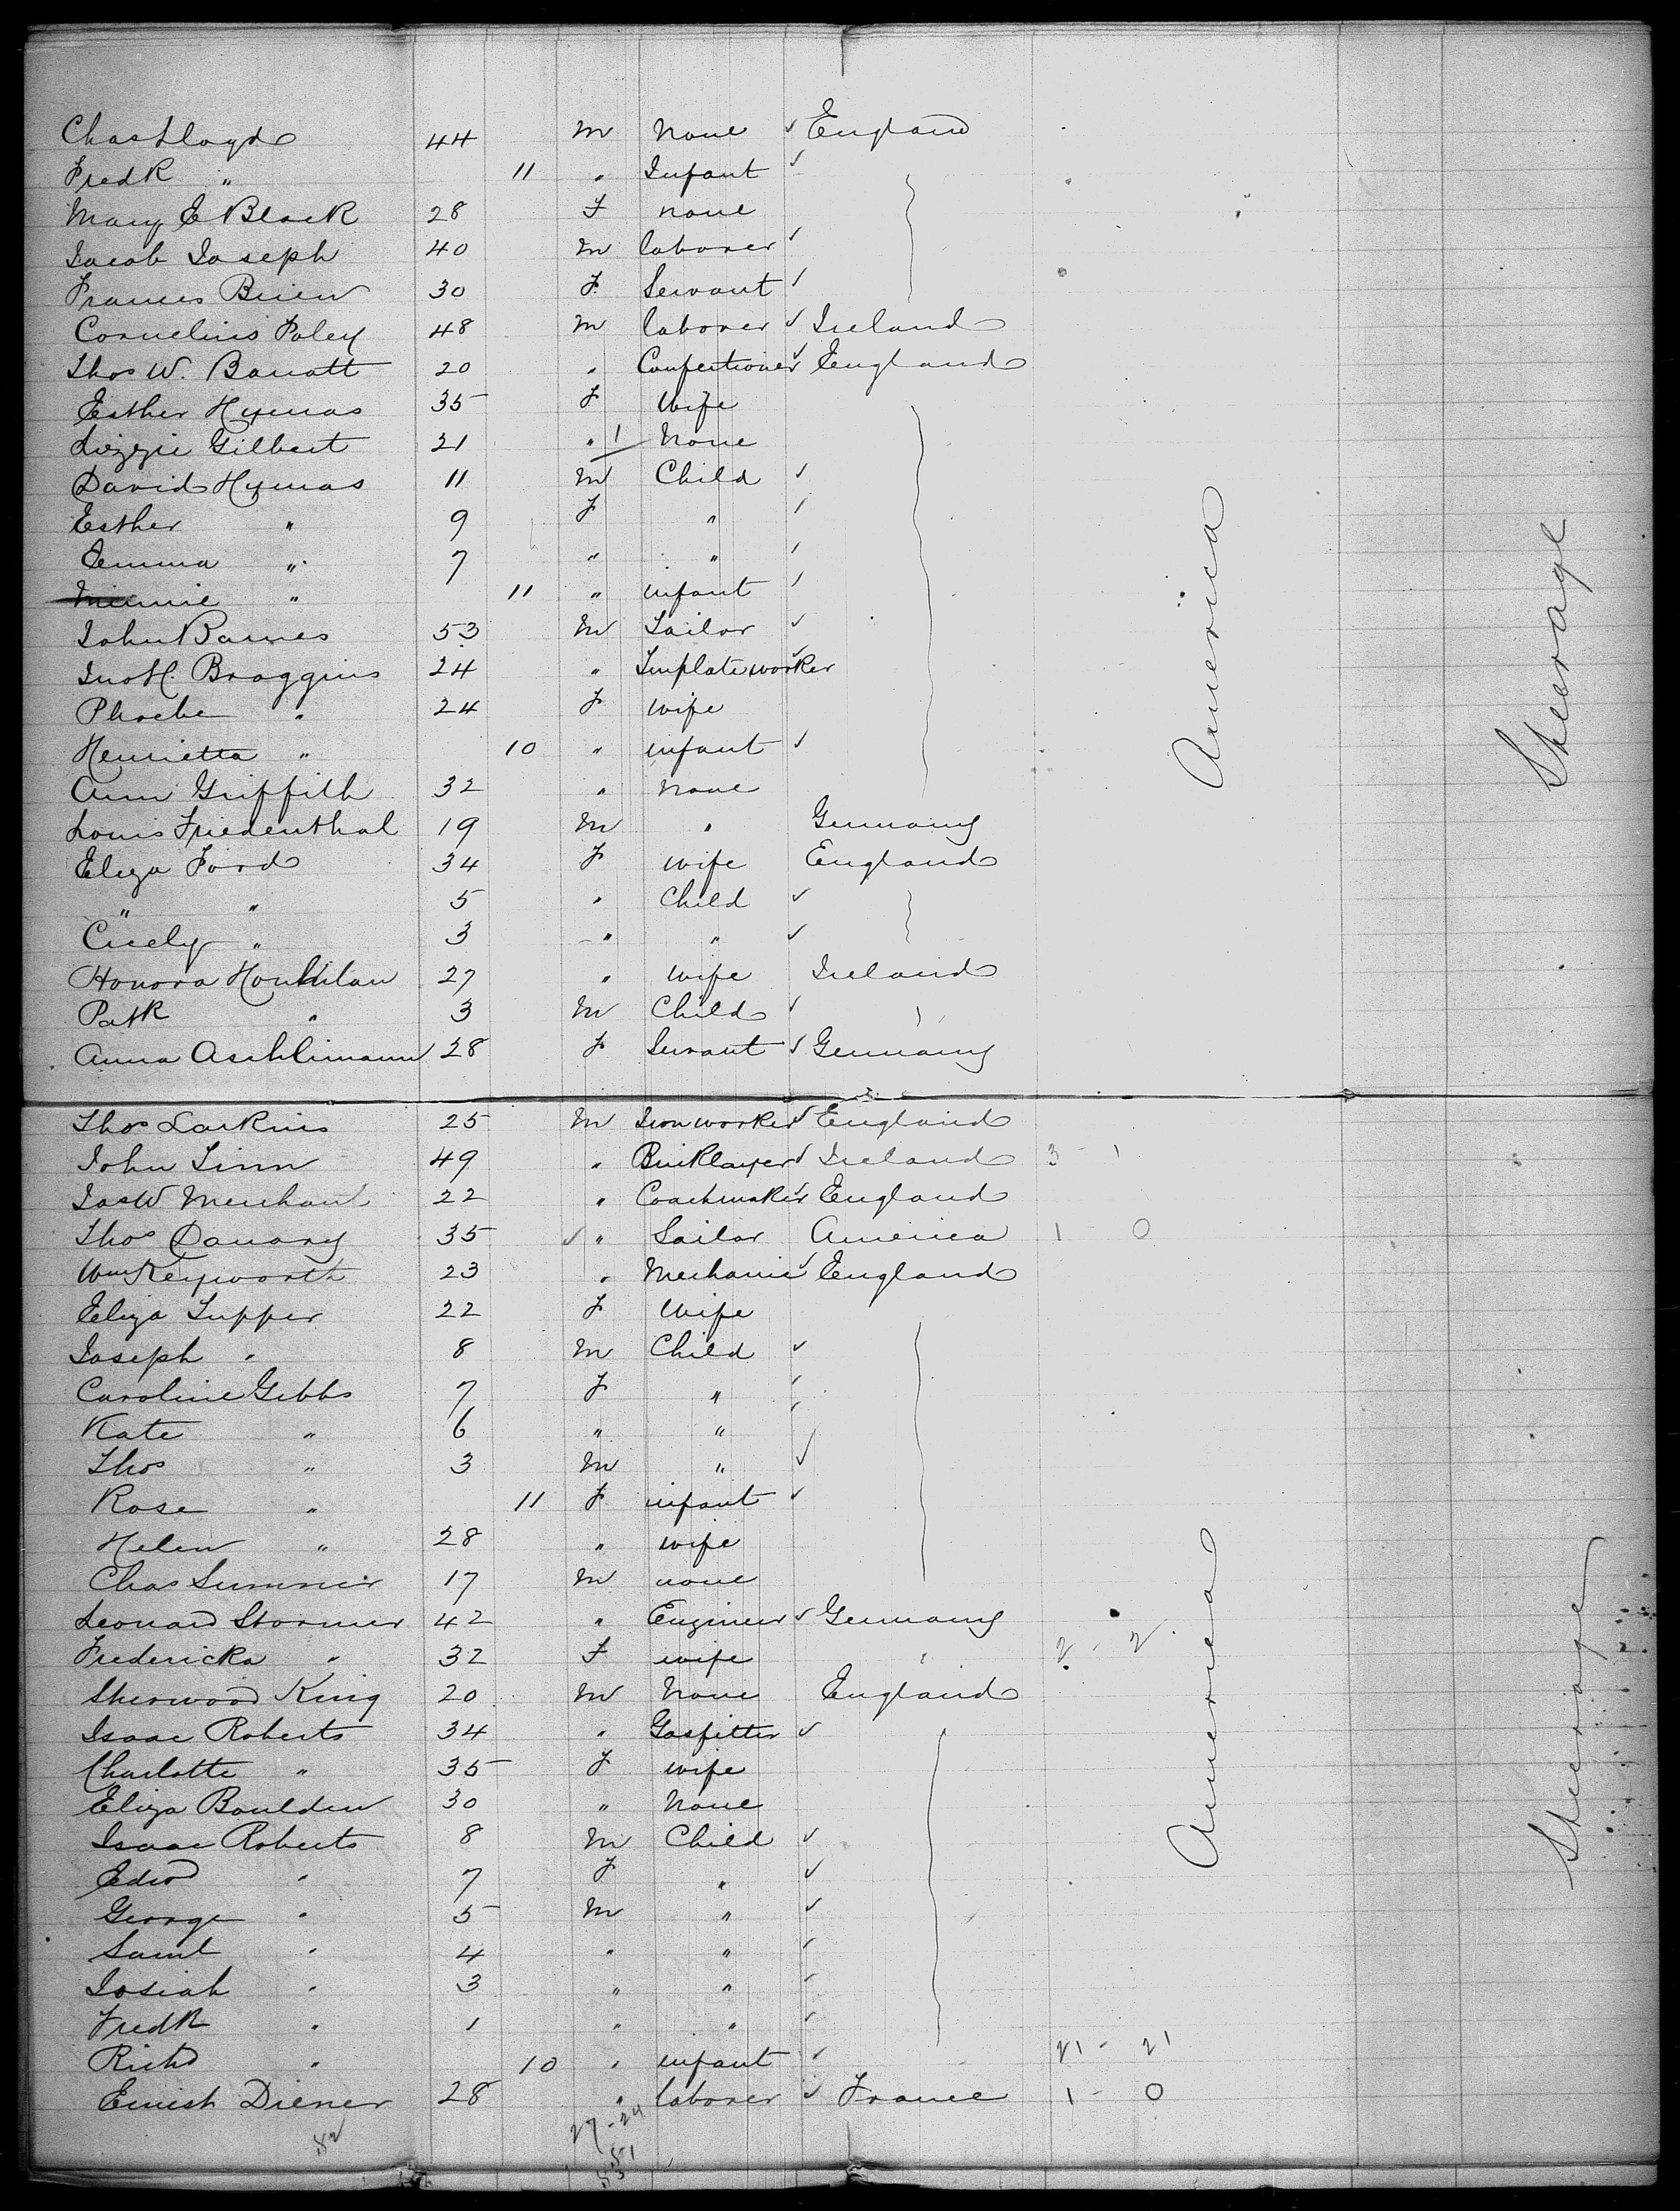 Chas Lloyd 44 M None ✓ England
Fredk " 11 " Infant ✓
Mary E Black 28 F none
Jacob Joseph 40 M laborer ✓
Frances Brien 30 F Servant ✓
Cornelius Foley 48 M laborer ✓ Ireland
Thos W. Barratt 20 " Confectioner ✓ England
Esther Hymas 35 F Wife
Lizzie Gilbert 21 " 1 None
David Hymas 11 M Child ✓
Esther " 9 F " ✓
Emma " 7 " " ✓
Minnie " 11 " infant ✓
John Barnes 53 M Tailor ✓
Jno H. Braggins 24 " Tinplate worker ✓
Phoebe " 24 F Wife
Henrietta " 10 " infant ✓
Ann Griffith 32 " none
Louis Friedenthal 19 M " Germany
Eliza Ford 34 F wife England
" " 5 " Child ✓
Cicely " 3 " " ✓
Honora 27 " Wife Ireland
Patk " 3 M Child ✓
Anna Aschlimann 28 F Servant ✓ Germany
America
Steerage
Thos Larkins 25 M Ironworker ✓ England
John Finn 49 " Bricklayer ✓ Ireland 3 - 1
Jas W Merchant 22 " Coachmaker ✓ England
Thos 35 ✓ " Sailor America 1 - 0
Wm Keyworth 23 " Mechanic ✓ England
Eliza Tupper 22 F Wife
Joseph " 8 M Child ✓
Caroline Gibbs 7 F " ✓
Kate " 6 " " ✓
Thos " 3 M " ✓
Rose " 11 F infant ✓
Helen " 28 " wife
Chas Summer 17 M none
Leonard Stormer 42 " Engineer ✓ Germany
Fredericka " 32 F wife 2 - 2
Sherwood King 20 M None England
Isaac Roberts 34 " Gasfitter ✓
Charlotte " 35 F wife
Eliza Boulden 30 " None
Isaac Roberts 8 M Child ✓
Edwd " 7 F " ✓
George " 5 M " ✓
Saml " 4 " " ✓
Josiah " 3 " " ✓
Fredk " 1 " " ✓
Richd " 10 " infant ✓ 21 - 21
Ernest Diener 28 " laborer ✓ France 1 - 0
America
Steerage
52 27 - 24
51